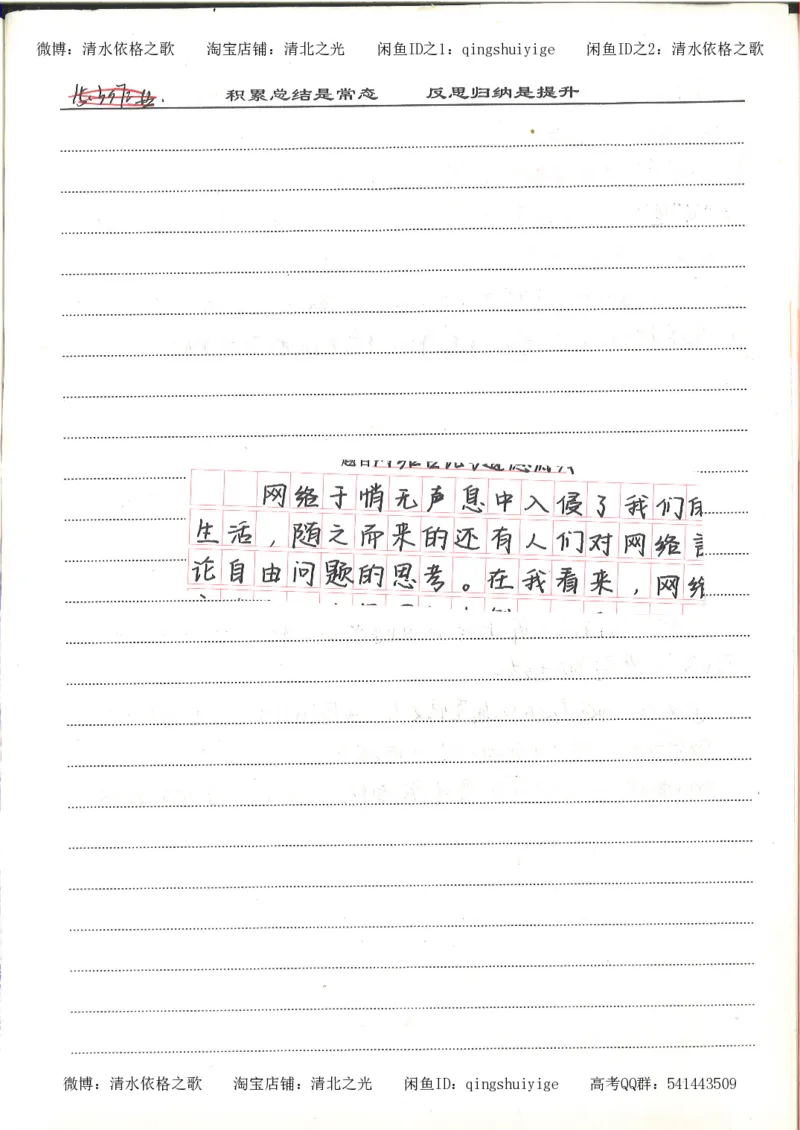 微博：清水依格之歌 淘宝店铺：清北之光 闲鱼ID之1：qingshuiyige 闲鱼ID之2：清水依格之歌
积累总结是常态 反思归纳是提升
网络于悄无声息中入侵了我们
生活，随之而来的还有人们对网络
论自由问题的思考。在我看来，网
微博：清水依格之歌 淘宝店铺：清北之光 闲鱼ID：qingshuiyige 高考QQ群：541443509